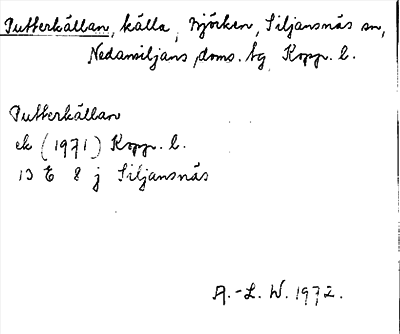 Putterkällan, källa, Björken, Siljansnäs sn,
Nedansiljans doms. tg Kopp. l.
Putterkällan
ek (1971) Kopp. l.
13 E 8 j Siljansnäs
A.-L. W. 1972.